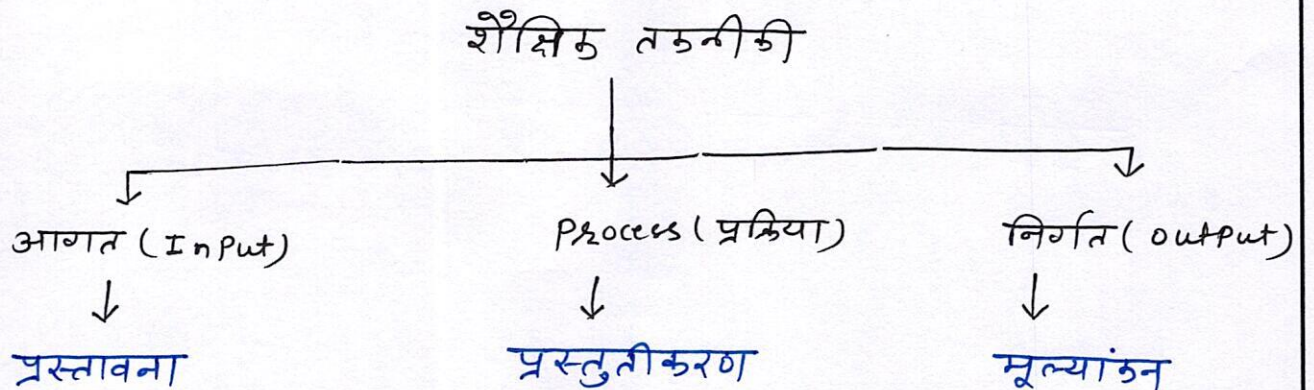 शैक्षिक तकनीकी
आगत (Input) Process (प्रक्रिया) निर्गत (output)
प्रस्तावना प्रस्तुतीकरण मूल्यांकन